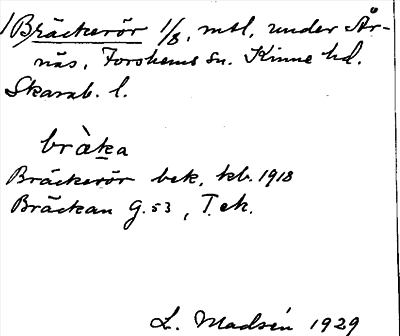 1 Bräckerör 1/8, mtl, under År-
näs, Forshems sn. Kinne hd.
Skarab. l.
bràka
Bräckerör bek. kb. 1918
Bräckan G. 53, T. ek.
L. Madsén 1929